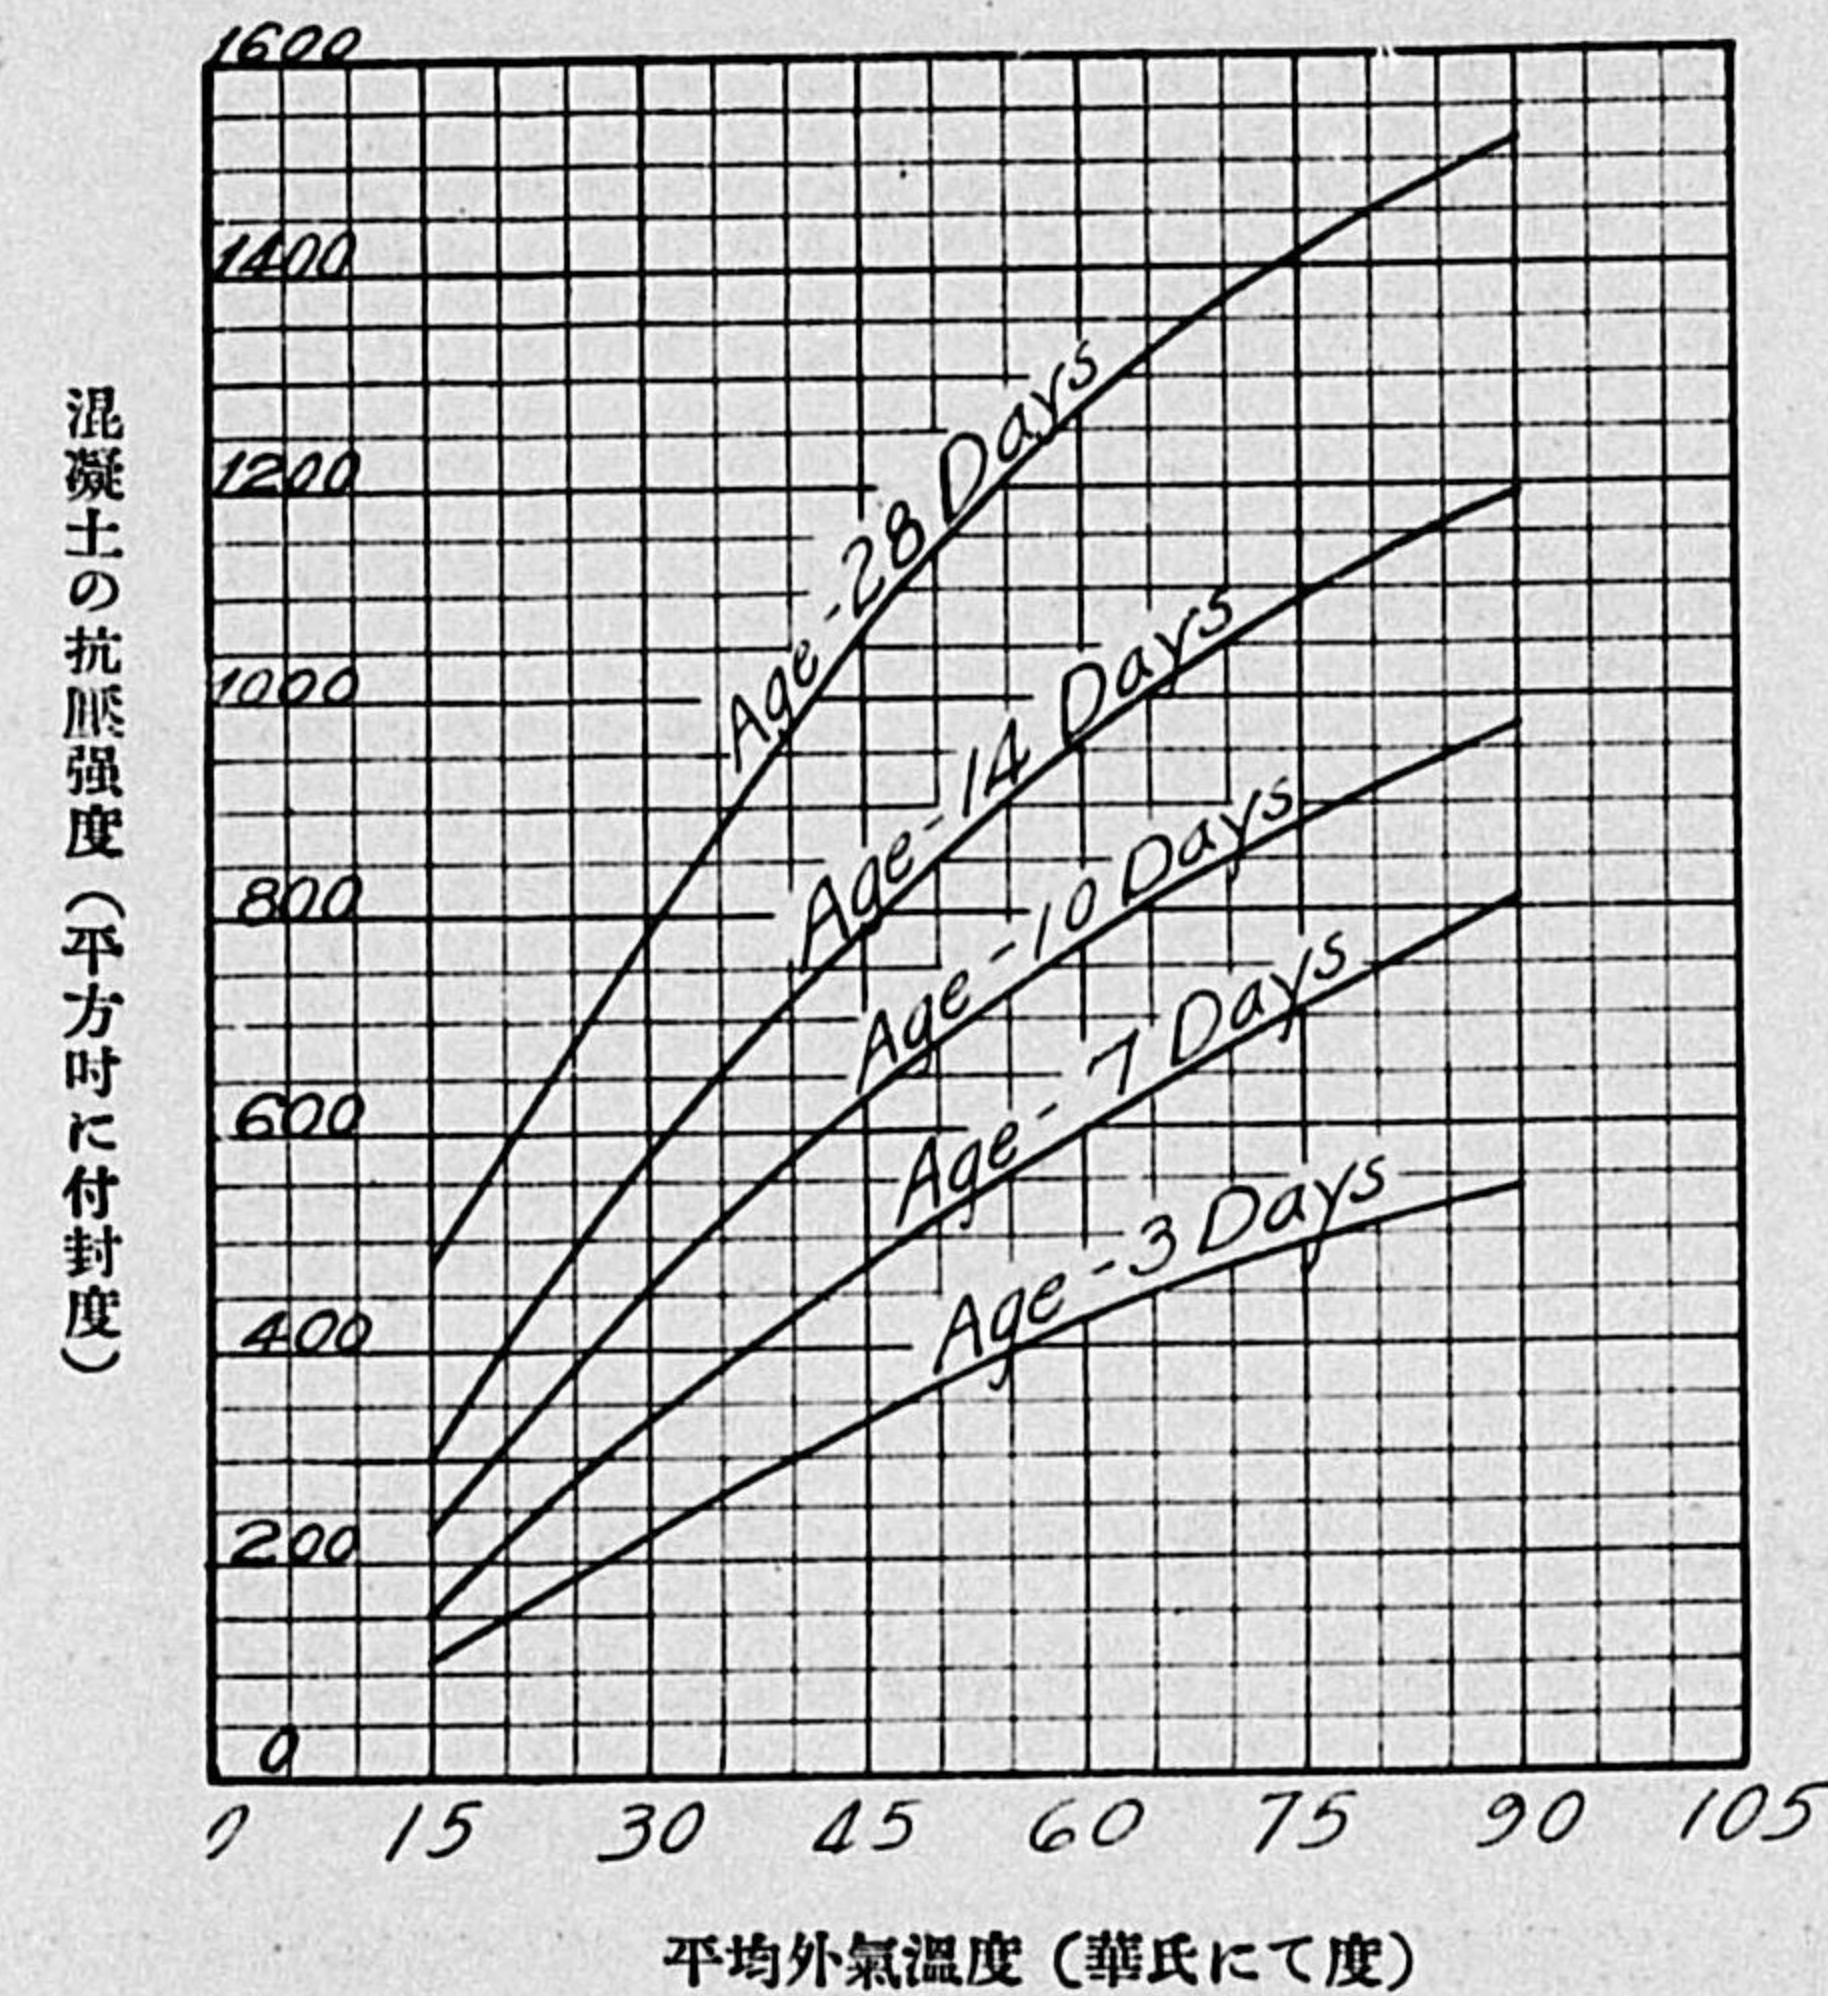 1600
1400
1200
1000
800
600
400
200
0
混凝土の抗壓强度（平方吋に付封度）
Age-28 Days
Age-14 Days
Age-10 Days
Age-7 Days
Age-3 Days
0 15 30 45 60 75 90 105
平均外氣溫度（華氏にて度）